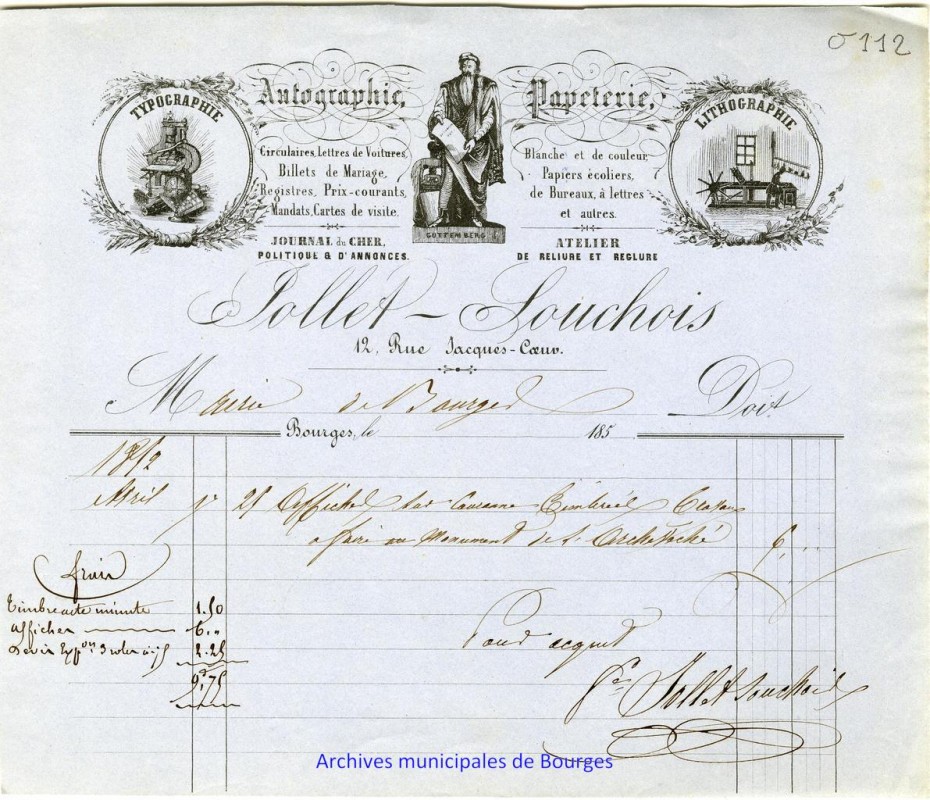 σ 112
TYPOGRAPHIE
Autographie,
Circulaires, Lettres de Voitures,
Billets de Mariage,
Registres, Prix-courants,
Mandats, Cartes de visite.
JOURNAL du CHER,
POLITIQUE & D'ANNONCES.
GUTTEMBERG
Papeterie,
Blanche et de couleur,
Papiers écoliers,
de Bureaux, à lettres
et autres.
ATELIER
DE RELIURE ET REGLURE
LITHOGRAPHIE
Jollet-Souchois
12, Rue Jacques-Cœur.
Mairie de Bourges Doit
Bourges, le 185
1852
Avril 25 affiches sur Couronne Timbrées
à faire au Monument de l'Archevêché 6,
frais
Timbre acte minute 1.50
affiches 6. "
Devis 2.25
9,75
Pour acquit
Jollet Souchois
Archives municipales de Bourges